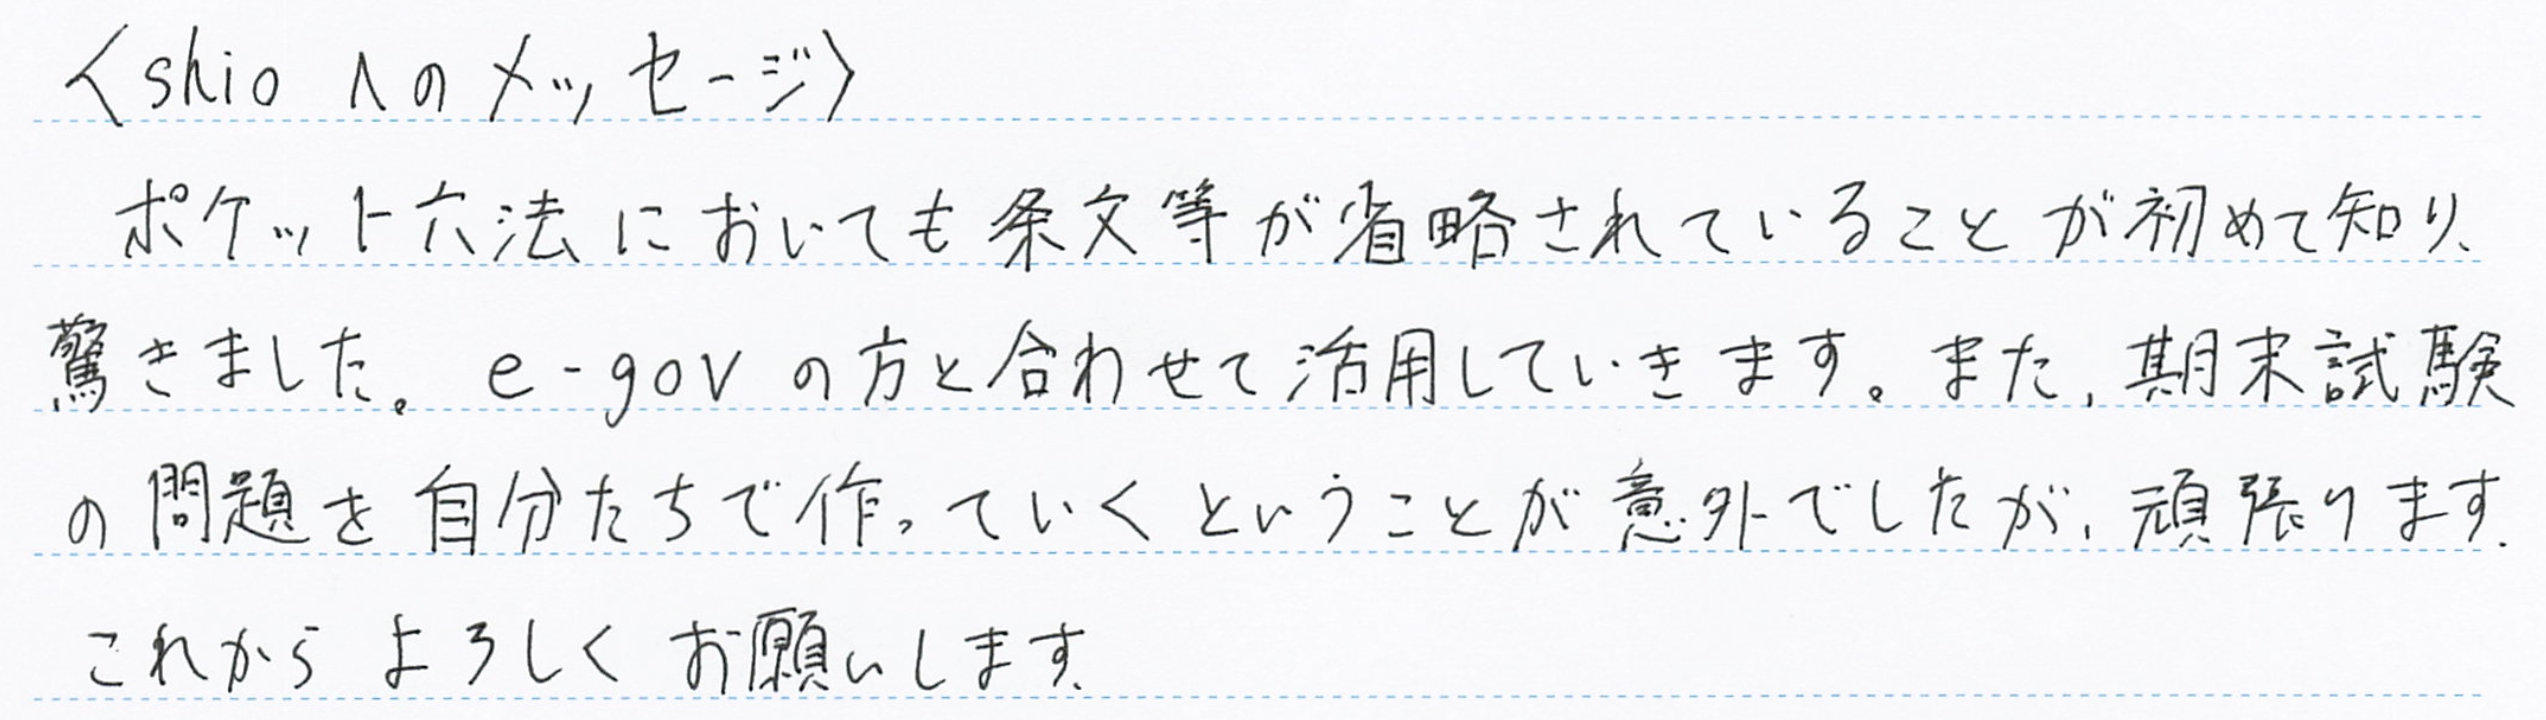 〈shioへのメッセージ〉
ポケット六法においても条文等が省略されていることが初めて知り、
驚きました。e-govの方と合わせて活用していきます。また、期末試験
の問題を自分たちで作っていくということが意外でしたが、頑張ります。
これからよろしくお願いします。